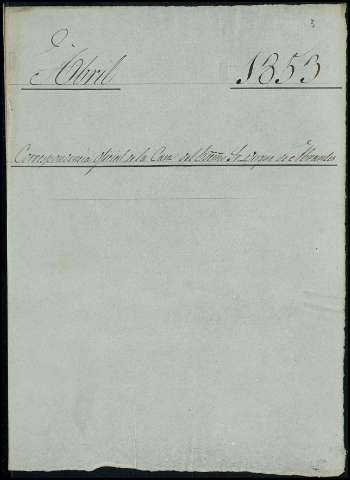 Abril 1853
Correspondencia oficial de la Casa del Exmo Sr Duque de Abrantes